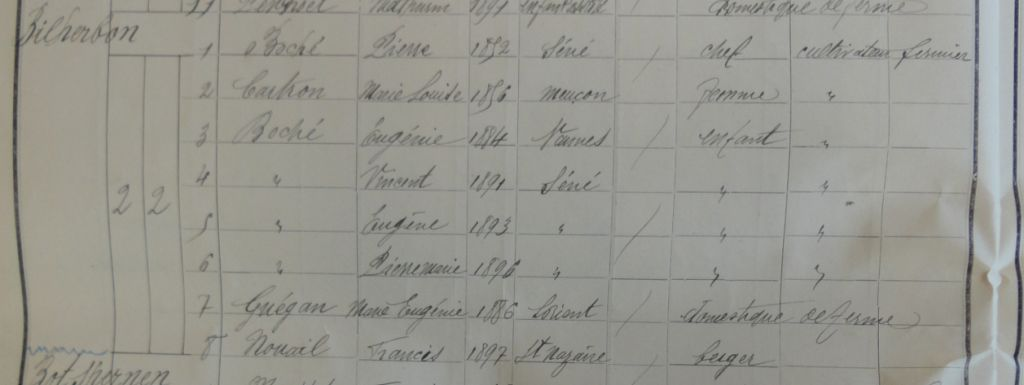 11 Mathurin 1891 domestique de ferme
Bilherbon
1 Boché Pierre 1852 Séné / chef cultivateur fermier
2 Cartron Marie Louise 1856 meucon femme "
3 Boché Eugénie 1884 Vannes / enfant "
4 " Vincent 1891 Séné " "
2 2
5 " Eugène 1893 " / " "
6 " Pierre marie 1896 " " "
7 Guégan Marie Eugénie 1886 Lorient / domestique de ferme
8 Nouail Francis 1897 St Nazaire / berger